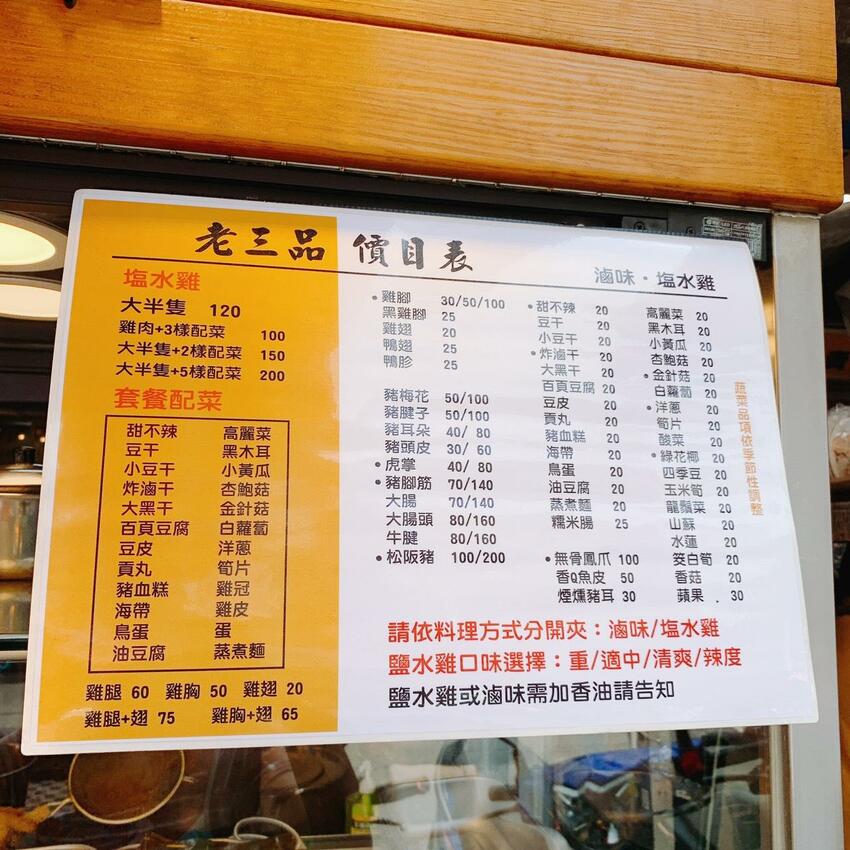 老三品 價目表
塩水雞
大半隻 120
雞肉+3樣配菜 100
大半隻+2樣配菜 150
大半隻+5樣配菜 200
套餐配菜
甜不辣 高麗菜
豆干 黑木耳
小豆干 小黃瓜
炸滷干 杏鮑菇
大黑干 金針菇
百頁豆腐 白蘿蔔
豆皮 洋蔥
貢丸 筍片
豬血糕 雞冠
海帶 雞皮
鳥蛋 蛋
油豆腐 蒸煮麵
雞腿 60 雞胸 50 雞翅 20
雞腿+翅 75 雞胸+翅 65
滷味・塩水雞
•雞腳 30/50/100
黑雞腳 25
雞翅 20
鴨翅 25
鴨胗 25
豬梅花 50/100
豬腱子 50/100
豬耳朵 40/ 80
豬頭皮 30/ 60
•虎掌 40/ 80
•豬腳筋 70/140
大腸 70/140
大腸頭 80/160
牛腱 80/160
•松阪豬 100/200
•甜不辣 20
豆干 20
小豆干 20
•炸滷干 20
大黑干 20
百頁豆腐 20
豆皮 20
貢丸 20
豬血糕 20
海帶 20
鳥蛋 20
油豆腐 20
蒸煮麵 20
糯米腸 25
•無骨鳳爪 100
香Q魚皮 50
煙燻豬耳 30
高麗菜 20
黑木耳 20
小黃瓜 20
杏鮑菇 20
•金針菇 20
白蘿蔔 20
•洋蔥 20
筍片 20
酸菜 20
•綠花椰 20
四季豆 20
玉米筍 20
龍鬚菜 20
山蘇 20
水蓮 20
筊白筍 20
香菇 20
蘋果 . 30
蔬菜品項依季節性調整
請依料理方式分開夾：滷味/塩水雞
鹽水雞口味選擇：重/適中/清爽/辣度
鹽水雞或滷味需加香油請告知